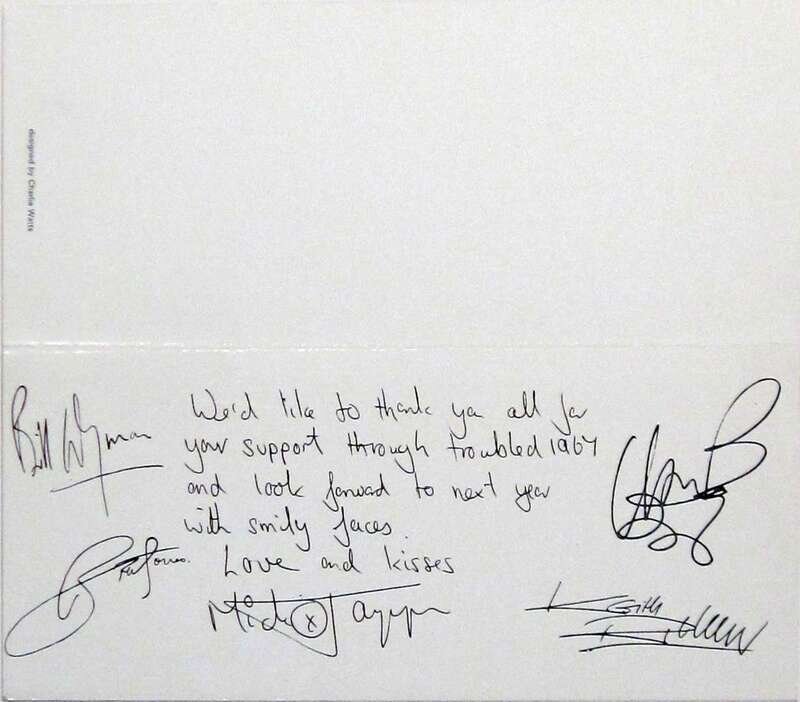 designed by Charlie Watts
We'd like to thank you all for
your support through troubled 1967
and look forward to next year
with smily faces.
Love and kisses
Bill Wyman
Mick x Jagger
Keith